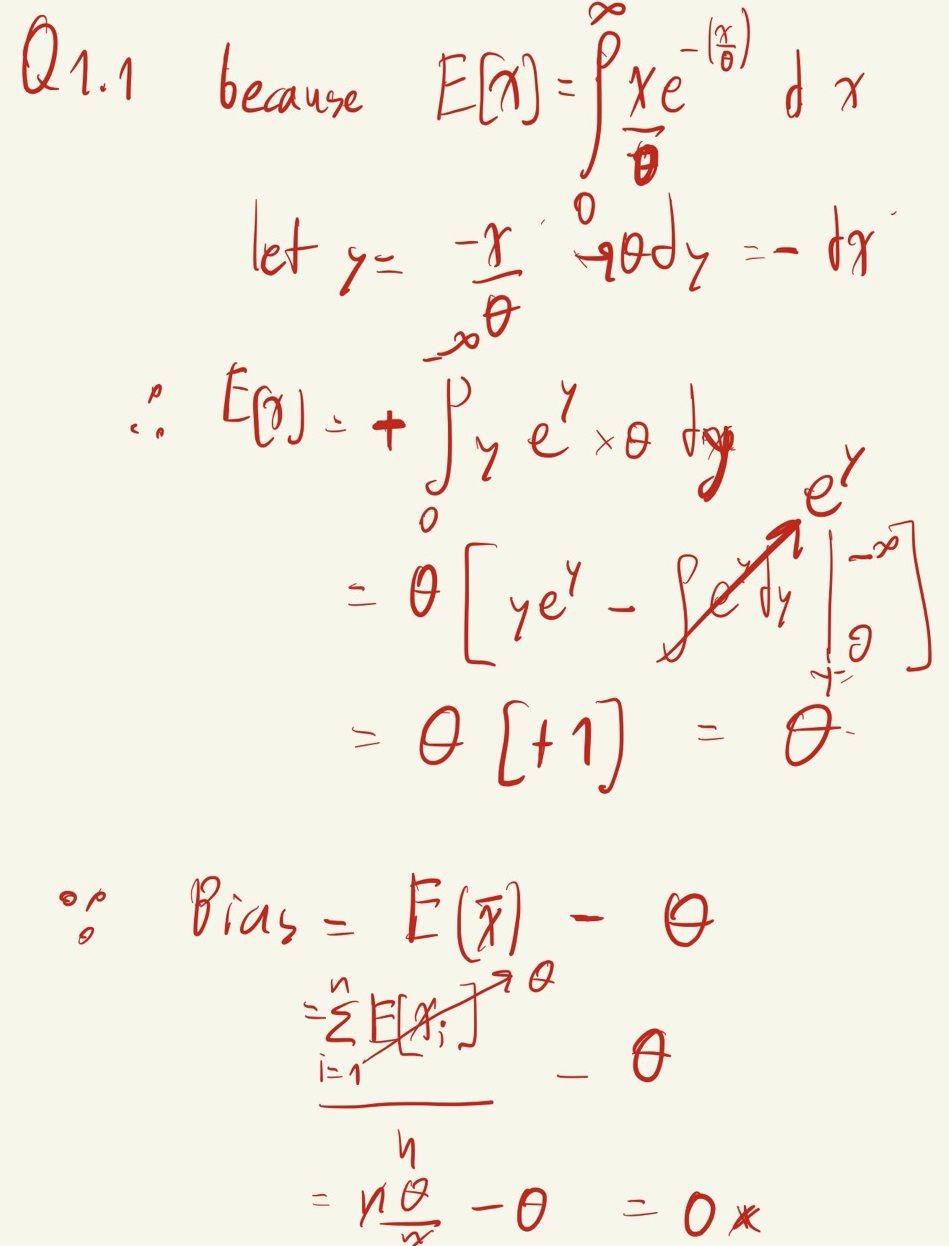 Q1.1 because E[x] = ∫₀^∞ x/θ e^{-(x/θ)} dx
let y = -x/θ θdy = - dx
∴ E[x] = + ∫₀^{-∞} y e^y × θ dy
= θ [ ye^y - ∫e^y dy → e^y |_{y=0}^{-∞} ]
= θ [+1] = θ
∵ Bias = E(x̄) - θ
= ∑_{i=1}^n E[x_i] → θ / n - θ
= nθ/n - θ = 0